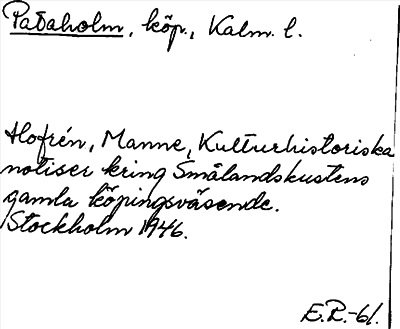 Pataholm, köp., Kalm. l.
Hofrén, Manne, Kulturhistoriska
notiser kring Smålandskustens
gamla köpingsväsende.
Stockholm 1946.
E.R.-61.